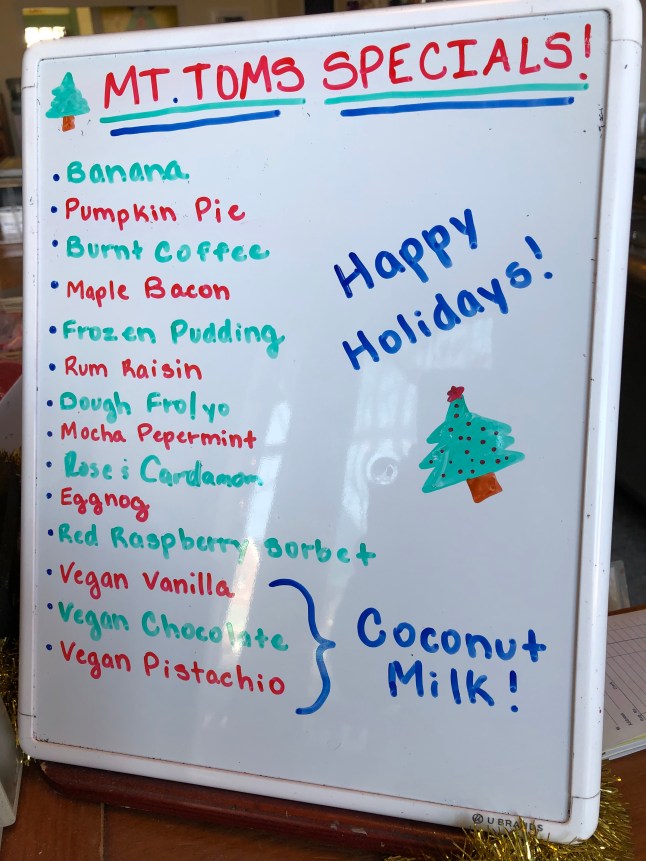 MT. TOMS SPECIALS!
• Banana
• Pumpkin Pie
• Burnt Coffee
• Maple Bacon
• Frozen Pudding
• Rum Raisin
• Dough Fro!yo
• Mocha Pepermint
• Rose & Cardamom
• Eggnog
• Red Raspberry Sorbet
• Vegan Vanilla
• Vegan Chocolate
• Vegan Pistachio
Happy
Holidays!
Coconut
Milk!
U BRANDS